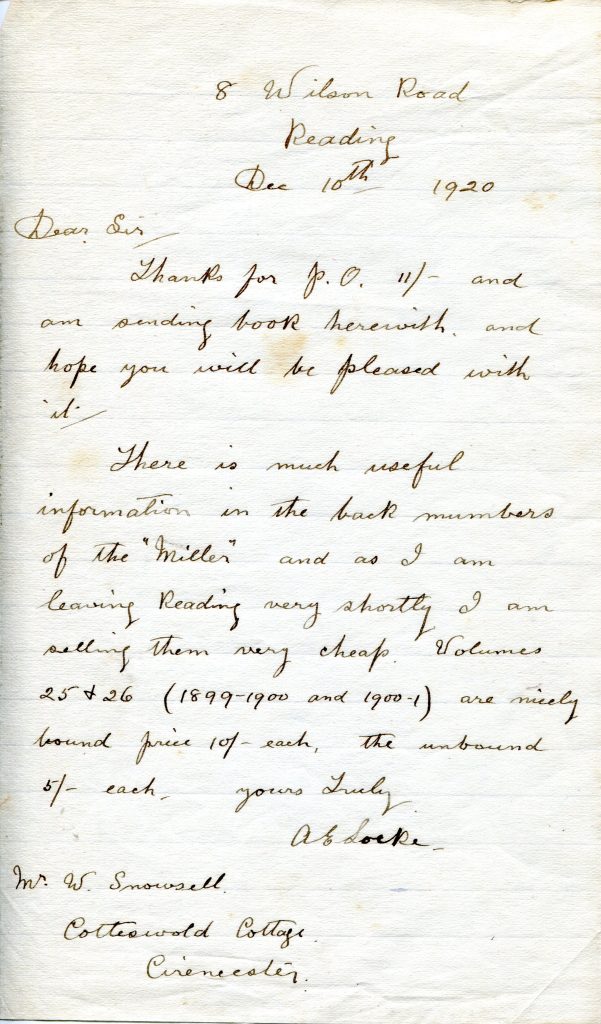 8 Wilson Road
Reading
Dec 10th 1920
Dear Sir
Thanks for P.O. 11/- and
am sending book herewith. and
hope you will be pleased with
it.
There is much useful
information in the back numbers
of the "Miller" and as I am
leaving Reading very shortly I am
selling them very cheap. Volumes
25 & 26 (1899-1900 and 1900-1) are nicely
bound price 10/- each, the unbound
5/- each, yours Truly
A E Locke
Mr. W. Snowsell.
Cotteswold Cottage.
Cirencester.